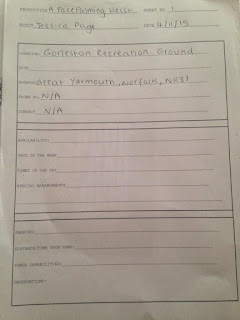 PRODUCTION A Face Palming Heist SHEET NO. 1
SCOUT Jessica Page DATE 4/11/15
LOCATION: Gorleston Recreation Ground
ADDRESS: Great Yarmouth, Norfolk, NR31
PHONE NO. N/A
CONTACT N/A
AVAILABILITY:
DAYS OF THE WEEK
TIMES OF THE DAY
SPECIAL ARRANGEMENTS
PARKING:
DISTANCE/TIME FROM HOME:
POWER CAPABILITIES:
OBSERVATIONS: